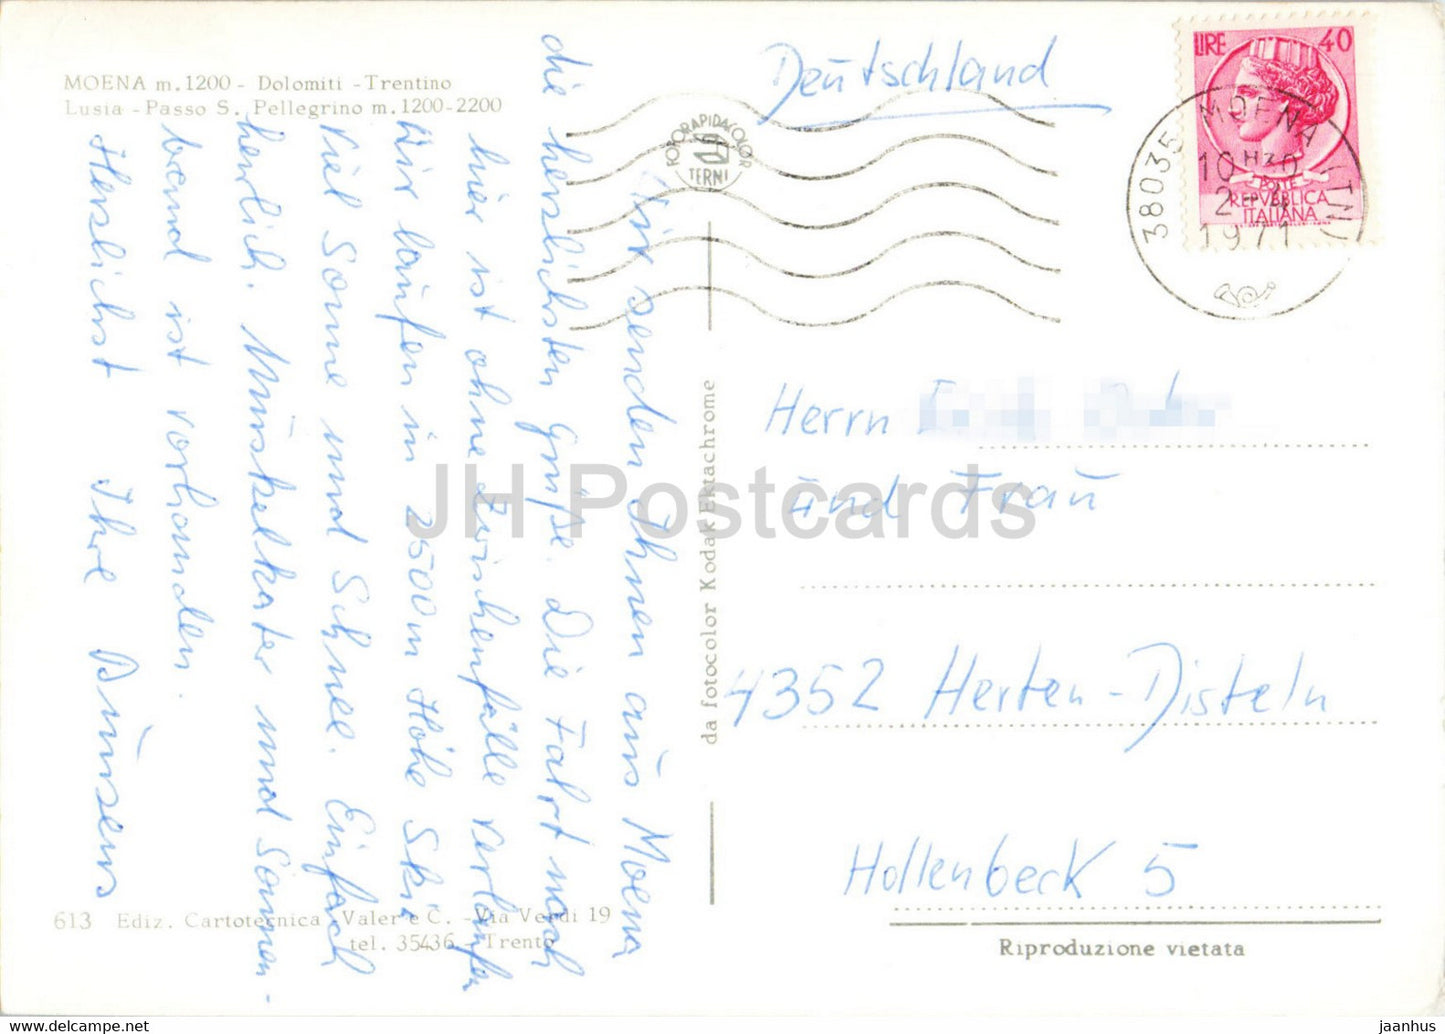 MOENA m. 1200 - Dolomiti - Trentino
Lusia - Passo S. Pellegrino m. 1200-2200
Wir senden Ihnen aus Moena
die herzlichsten Grüße. Die Fahrt nach
hier ist ohne Zwischenfälle verlaufen
Wir laufen in 2500 m Höhe Ski
Viel Sonne und Schnee. Einfach
herrlich. Muskelkater und Sonnen-
brand ist vorhanden.
Herzlichst Ihre
613 Ediz. Cartotecnica Valer e C. - Via Verdi 19
tel. 35436 - Trento
da fotocolor Kodak Ektachrome
FOTORAPIDACOLOR
TERNI
Deutschland
LIRE 40
POSTE
REPVBBLICA
ITALIANA
38035 MOENA (TN)
2-4
1971
Herrn
und Frau
4352 Herten-Disteln
Hollenbeck 5
Riproduzione vietata
JH Postcards
https://jhpostcards.com
jaanhus